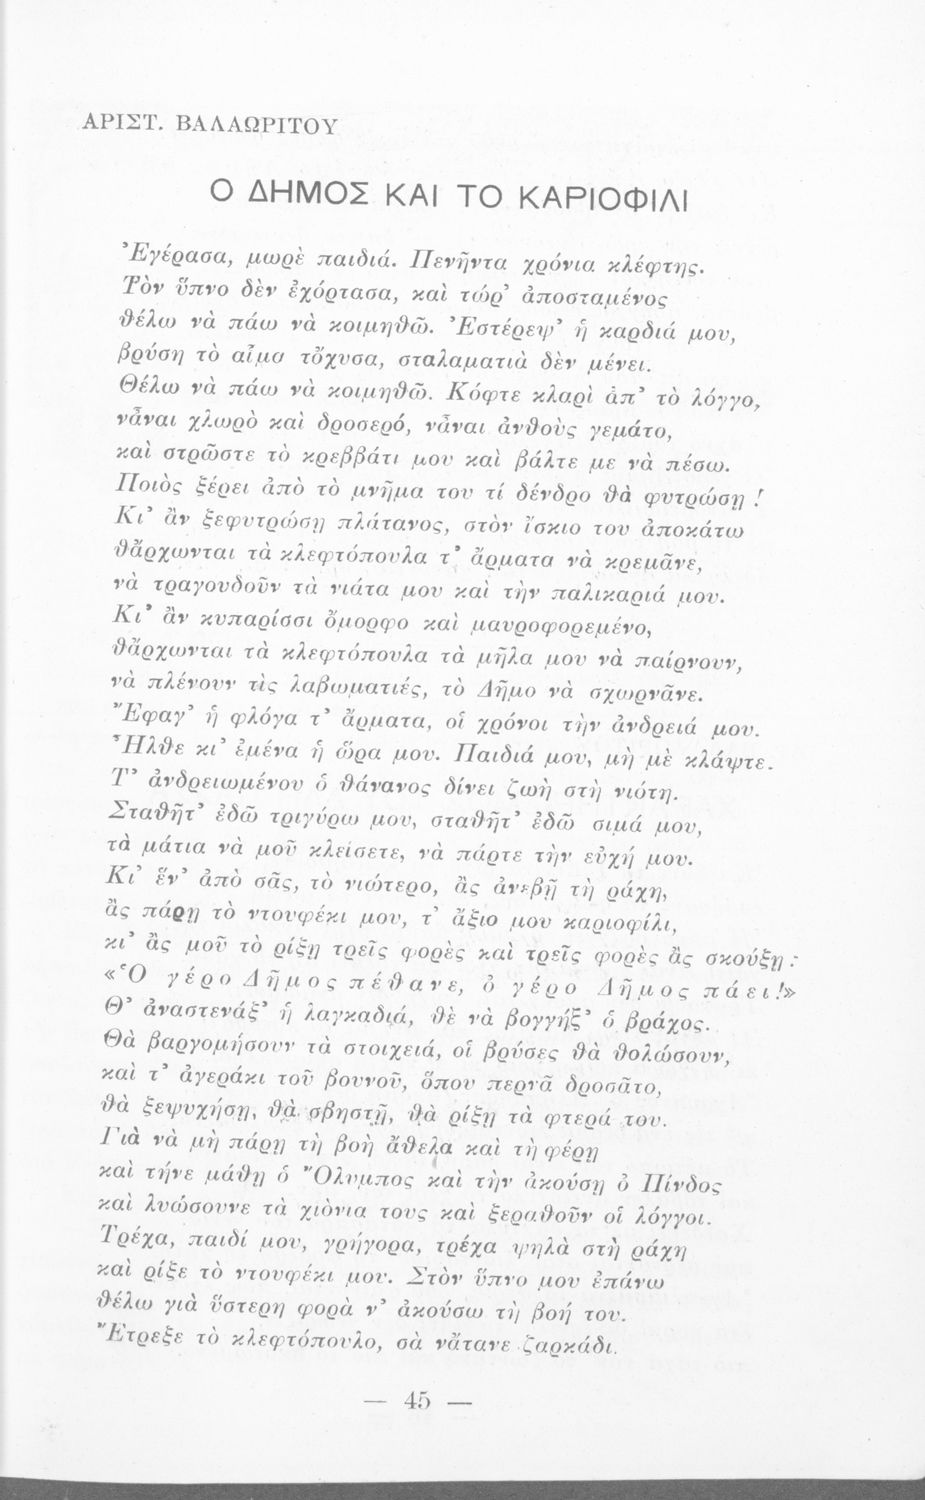 ΑΡΙΣΤ. ΒΑΛΑΩΡΙΤΟΥ
Ο ΔΗΜΟΣ ΚΑΙ ΤΟ ΚΑΡΙΟΦΙΛΙ
Ἐγέρασα, μωρὲ παιδιά. Πενῆντα χρόνια κλέφτης.
Τὸν ὕπνο δὲν ἐχόρτασα, καὶ τώρ’ ἀποσταμένος
θέλω νὰ πάω νὰ κοιμηθῶ. Ἐστέρεψ’ ἡ καρδιά μου,
βρύση τὸ αἷμα τὄχυσα, σταλαματιὰ δὲν μένει.
Θέλω νὰ πάω νὰ κοιμηθῶ. Κόφτε κλαρὶ ἀπ’ τὸ λόγγο,
νἆναι χλωρὸ καὶ δροσερό, νἆναι ἀνθοὺς γεμάτο,
καὶ στρῶστε τὸ κρεββάτι μου καὶ βάλτε με νὰ πέσω.
Ποιὸς ξέρει ἀπὸ τὸ μνῆμα του τί δένδρο θὰ φυτρώσῃ !
Κι’ ἂν ξεφυτρώσῃ πλάτανος, στὸν ἴσκιο του ἀποκάτω
θἄρχωνται τὰ κλεφτόπουλα τ’ ἄρματα νὰ κρεμᾶνε,
νὰ τραγουδοῦν τὰ νιάτα μου καὶ τὴν παλικαριά μου.
Κι’ ἂν κυπαρίσσι ὄμορφο καὶ μαυροφορεμένο,
θἄρχωνται τὰ κλεφτόπουλα τὰ μῆλα μου νὰ παίρνουν,
νὰ πλένουν τὶς λαβωματιές, τὸ Δῆμο νὰ σχωρνᾶνε.
Ἔφαγ’ ἡ φλόγα τ’ ἄρματα, οἱ χρόνοι τὴν ἀνδρειά μου.
Ἦλθε κι’ ἐμένα ἡ ὥρα μου. Παιδιά μου, μὴ μὲ κλάψτε.
Τ’ ἀνδρειωμένου ὁ θάνανος δίνει ζωὴ στὴ νιότη.
Σταθῆτ’ ἐδῶ τριγύρω μου, σταθῆτ’ ἐδῶ σιμά μου,
τὰ μάτια νὰ μοῦ κλείσετε, νὰ πάρτε τὴν εὐχή μου.
Κι’ ἕν’ ἀπὸ σᾶς, τὸ νιώτερο, ἂς ἀνεβῇ τὴ ράχη,
ἂς πάρῃ τὸ ντουφέκι μου, τ’ ἄξιο μου καριοφίλι,
κι’ ἂς μοῦ τὸ ρίξῃ τρεῖς φορὲς καὶ τρεῖς φορὲς ἂς σκούξῃ :
«Ὁ γέρο Δῆμος πέθανε, ὁ γέρο Δῆμος πάει!»
Θ’ ἀναστενάξ’ ἡ λαγκαδιά, θὲ νὰ βογγήξ’ ὁ βράχος.
Θὰ βαργομήσουν τὰ στοιχειά, οἱ βρύσες θὰ θολώσουν,
καὶ τ’ ἀγεράκι τοῦ βουνοῦ, ὅπου περνᾶ δροσᾶτο,
θὰ ξεψυχήσῃ, θὰ σβηστῇ, θὰ ρίξῃ τὰ φτερά του.
Γιὰ νὰ μὴ πάρῃ τὴ βοὴ ἄθελα καὶ τὴ φέρῃ
καὶ τήνε μάθῃ ὁ Ὄλυμπος καὶ τὴν ἀκούσῃ ὁ Πίνδος
καὶ λυώσουνε τὰ χιόνια τους καὶ ξεραθοῦν οἱ λόγγοι.
Τρέχα, παιδί μου, γρήγορα, τρέχα ψηλὰ στὴ ράχη
καὶ ρίξε τὸ ντουφέκι μου. Στὸν ὕπνο μου ἐπάνω
θέλω γιὰ ὕστερη φορὰ ν’ ἀκούσω τὴ βοή του.
Ἔτρεξε τὸ κλεφτόπουλο, σὰ νἄτανε ζαρκάδι.
— 45 —